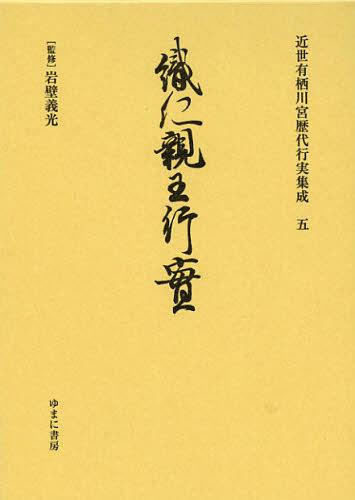 近世有栖川宮歴代行実集成　五
織仁親王行實
［監修］岩壁義光
ゆまに書房